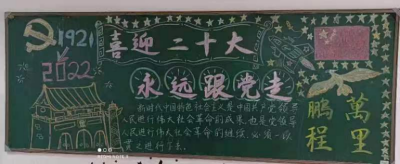 1921
2022
喜迎二十大
永远跟党走
新时代中国特色社会主义是中国共产党领导
人民进行伟大社会革命的成果，也是党领导
人民进行伟大社会革命的继续，必须一以
贯之进行下去。
鹏程
萬里